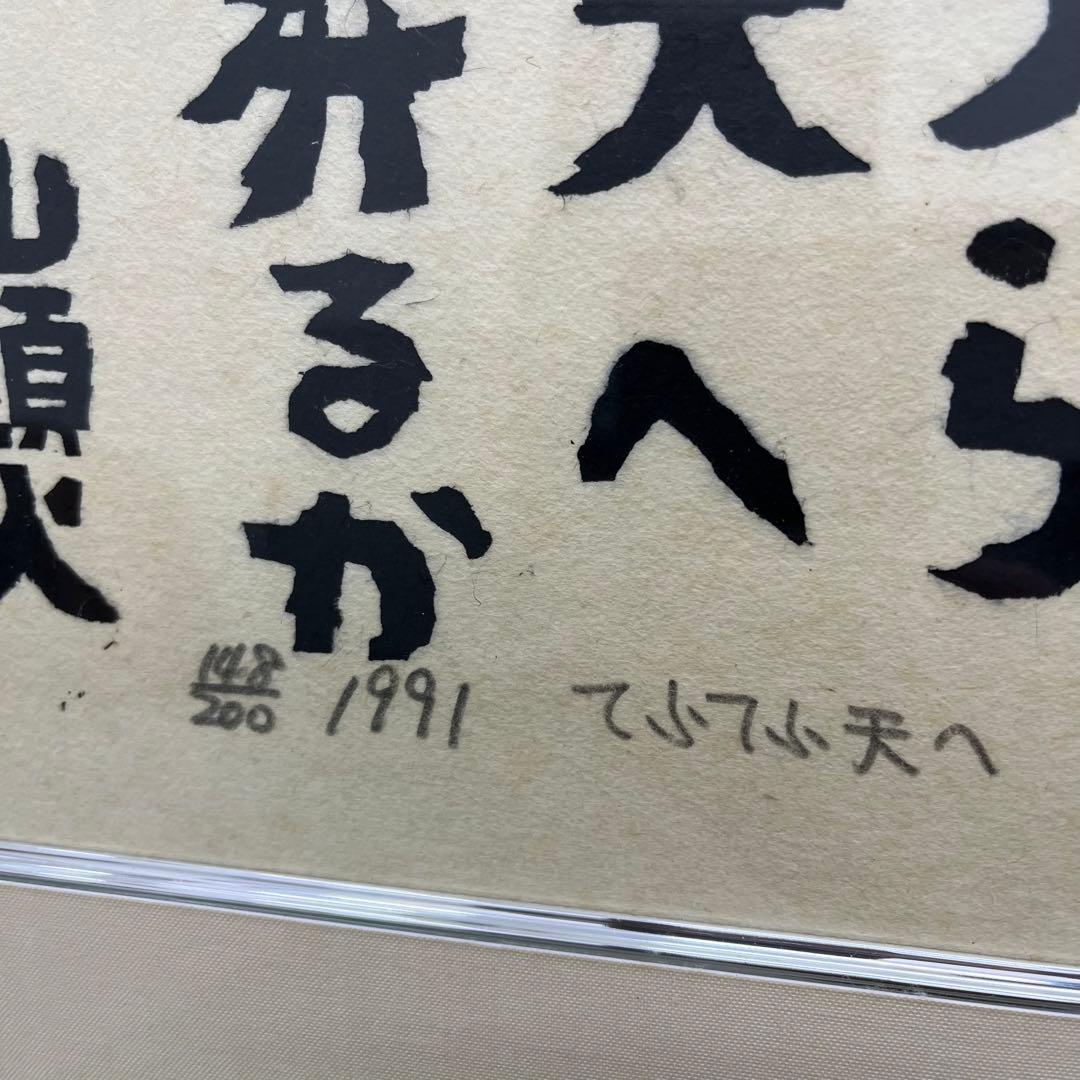 ら
天へ
昇るか
山頭火
148/200 1991 てふてふ天へ